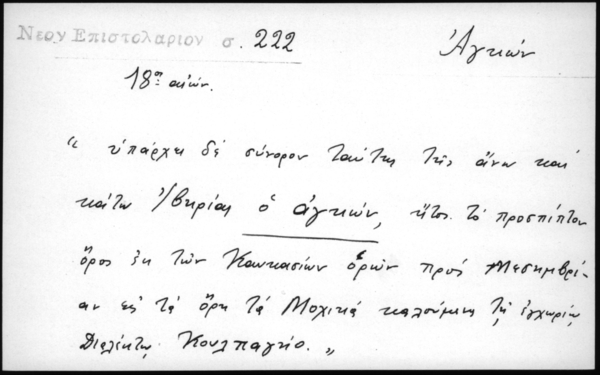 Νεον Επιστολαριον σ. 222
Ἀγκών
18ος αἰών.
“ ὑπάρχει δέ σύνορον ταύτης τῆς ἄνω καί
κάτω Ἰβηρίας ὁ ἀγκών, ἤτοι τό προσπίπτον
ὄρος ἐκ τῶν Καυκασίων ὀρῶν πρός Μεσημβρί-
αν εἰς τά ὄρη τά Μοχικά καλούμενα τῇ ἐγχωρίῳ
Διαλέκτῳ Κουλπαγκιο. „